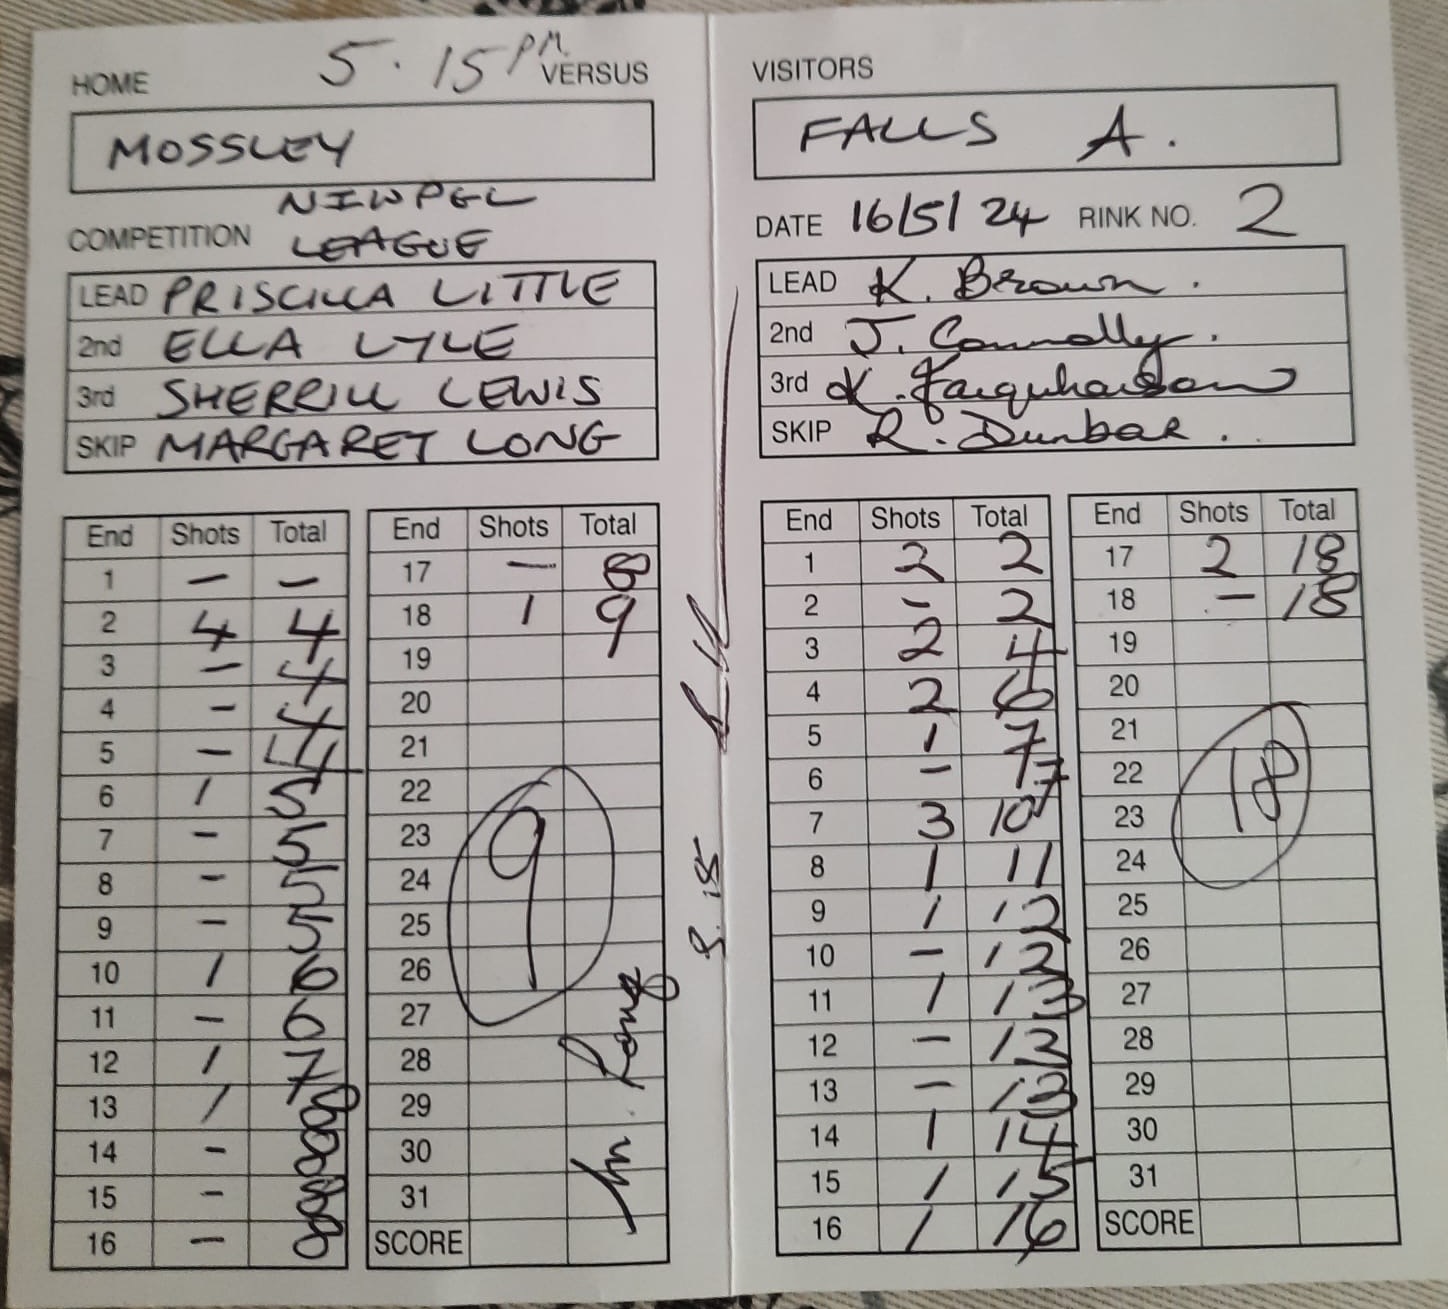 5.15 PM
HOME VERSUS
MOSSLEY
NIWPGL
COMPETITION LEAGUE
LEAD PRISCILLA LITTLE
2nd ELLA LYLE
3rd SHERRILL LEWIS
SKIP MARGARET LONG
End Shots Total
1 – –
2 4 4
3 – 4
4 – 4
5 – 4
6 1 5
7 – 5
8 – 5
9 – 5
10 1 6
11 – 6
12 1 7
13 1 8
14 – 8
15 – 8
16 – 8
End Shots Total
17 – 8
18 1 9
19
20
21
22
23
24
25
26
27
28
29
30
31
SCORE
9
M. Long
8.15
VISITORS
FALLS A.
DATE 16/5/24 RINK NO. 2
LEAD K. Brown.
2nd J. Connolly.
3rd K. Farquharson
SKIP R. Dunbar.
End Shots Total
1 2 2
2 – 2
3 2 4
4 2 6
5 1 7
6 – 7
7 3 10
8 1 11
9 1 12
10 – 12
11 1 13
12 – 13
13 – 13
14 1 14
15 1 15
16 1 16
End Shots Total
17 2 18
18 – 18
19
20
21
22
23
24
25
26
27
28
29
30
31
SCORE
18